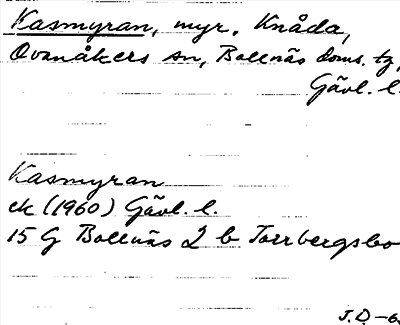 Kasmyran, myr, Knåda,
Ovanåkers sn, Bollnäs doms. tg,
Gävl. l.
Kasmyran
ek (1960) Gävl. l.
15 G Bollnäs 2 b Torrbergsbo
J.D. -6